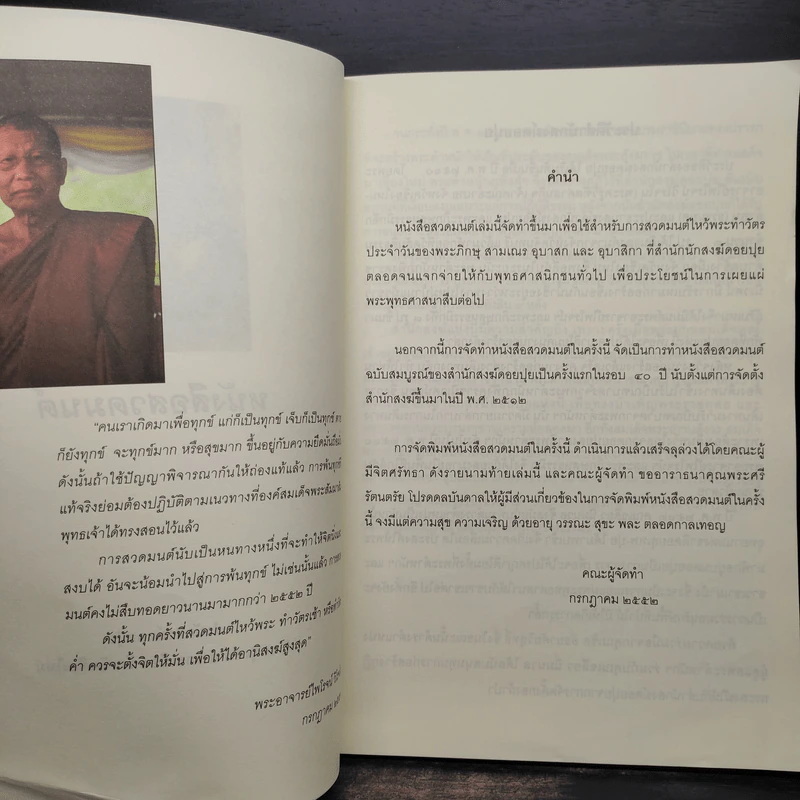 "คนเราเกิดมาเพื่อทุกข์ แก่ก็เป็นทุกข์ เจ็บก็เป็นทุกข์
ก็ยังทุกข์ จะทุกข์มาก หรือสุขมาก ขึ้นอยู่กับความยึดมั่น
ดังนั้นถ้าใช้ปัญญาพิจารณากันให้ถ่องแท้แล้ว การพ้นทุกข์
แท้จริงย่อมต้องปฏิบัติตามแนวทางที่องค์สมเด็จพระสัมมา
พุทธเจ้าได้ทรงสอนไว้แล้ว
การสวดมนต์นับเป็นหนทางหนึ่งที่จะทำให้จิต
สงบได้ อันจะน้อมนำไปสู่การพ้นทุกข์ ไม่เช่นนั้นแล้ว
มนต์คงไม่สืบทอดยาวนานมามากกว่า ๒๕๕๒ ปี
ดังนั้น ทุกครั้งที่สวดมนต์ไหว้พระ ทำวัตรเช้า หรือ
ค่ำ ควรจะตั้งจิตให้มั่น เพื่อให้ได้อานิสงฆ์สูงสุด"
พระอาจารย์ไพโรจน์
กรกฎาคม
คำนำ
หนังสือสวดมนต์เล่มนี้จัดทำขึ้นมาเพื่อใช้สำหรับการสวดมนต์ไหว้พระทำวัตร
ประจำวันของพระภิกษุ สามเณร อุบาสก และ อุบาสิกา ที่สำนักนักสงฆ์ดอยปุย
ตลอดจนแจกจ่ายให้กับพุทธศาสนิกชนทั่วไป เพื่อประโยชน์ในการเผยแผ่
พระพุทธศาสนาสืบต่อไป
นอกจากนี้การจัดทำหนังสือสวดมนต์ในครั้งนี้ จัดเป็นการทำหนังสือสวดมนต์
ฉบับสมบูรณ์ของสำนักสงฆ์ดอยปุยเป็นครั้งแรกในรอบ ๔๐ ปี นับตั้งแต่การจัดตั้ง
สำนักสงฆ์ขึ้นมาในปี พ.ศ. ๒๕๑๒
การจัดพิมพ์หนังสือสวดมนต์ในครั้งนี้ ดำเนินการแล้วเสร็จลุล่วงได้โดยคณะผู้
มีจิตศรัทธา ดังรายนามท้ายเล่มนี้ และคณะผู้จัดทำ ขออาราธนาคุณพระศรี
รัตนตรัย โปรดดลบันดาลให้ผู้มีส่วนเกี่ยวข้องในการจัดพิมพ์หนังสือสวดมนต์ในครั้ง
นี้ จงมีแต่ความสุข ความเจริญ ด้วยอายุ วรรณะ สุขะ พละ ตลอดกาลเทอญ
คณะผู้จัดทำ
กรกฎาคม ๒๕๕๒